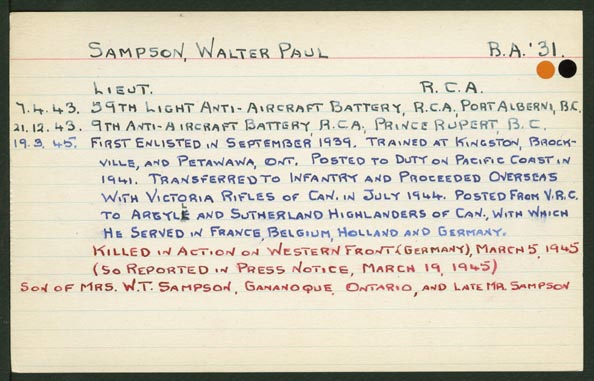 SAMPSON, WALTER PAUL B.A. '31.
LIEUT. R.C.A.
7.4.43. 59TH LIGHT ANTI-AIRCRAFT BATTERY, R.C.A., PORT ALBERNI, B.C.
21.12.43. 9TH ANTI-AIRCRAFT BATTERY, R.C.A., PRINCE RUPERT, B.C.
19.3.45. FIRST ENLISTED IN SEPTEMBER 1939. TRAINED AT KINGSTON, BROCK-
VILLE, AND PETAWAWA, ONT. POSTED TO DUTY ON PACIFIC COAST IN
1941. TRANSFERRED TO INFANTRY AND PROCEEDED OVERSEAS
WITH VICTORIA RIFLES OF CAN. IN JULY 1944. POSTED FROM V.R.C.
TO ARGYLL AND SUTHERLAND HIGHLANDERS OF CAN., WITH WHICH
HE SERVED IN FRANCE, BELGIUM, HOLLAND AND GERMANY.
KILLED IN ACTION ON WESTERN FRONT (GERMANY), MARCH 5, 1945
(SO REPORTED IN PRESS NOTICE, MARCH 19, 1945)
SON OF MRS. W.T. SAMPSON, GANANOQUE, ONTARIO, AND LATE MR. SAMPSON